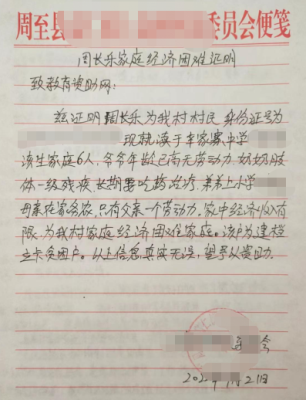 周至县 委员会便笺
周长乐家庭经济困难证明
致教育资助网:
兹证明周长乐为我村村民 身份证号为
现就读于辛家寨中学
该生家庭6人,爷爷年龄已高无劳动力 奶奶肢
体一级残疾 长期要吃药治疗 弟弟上小学
母亲在家务农,只有父亲一个劳动力,家中经济收入有
限 为我村家庭经济困难家庭。该户为建档
立卡贫困户。以上信息真实无误,望予以资助。
会
202 月21日